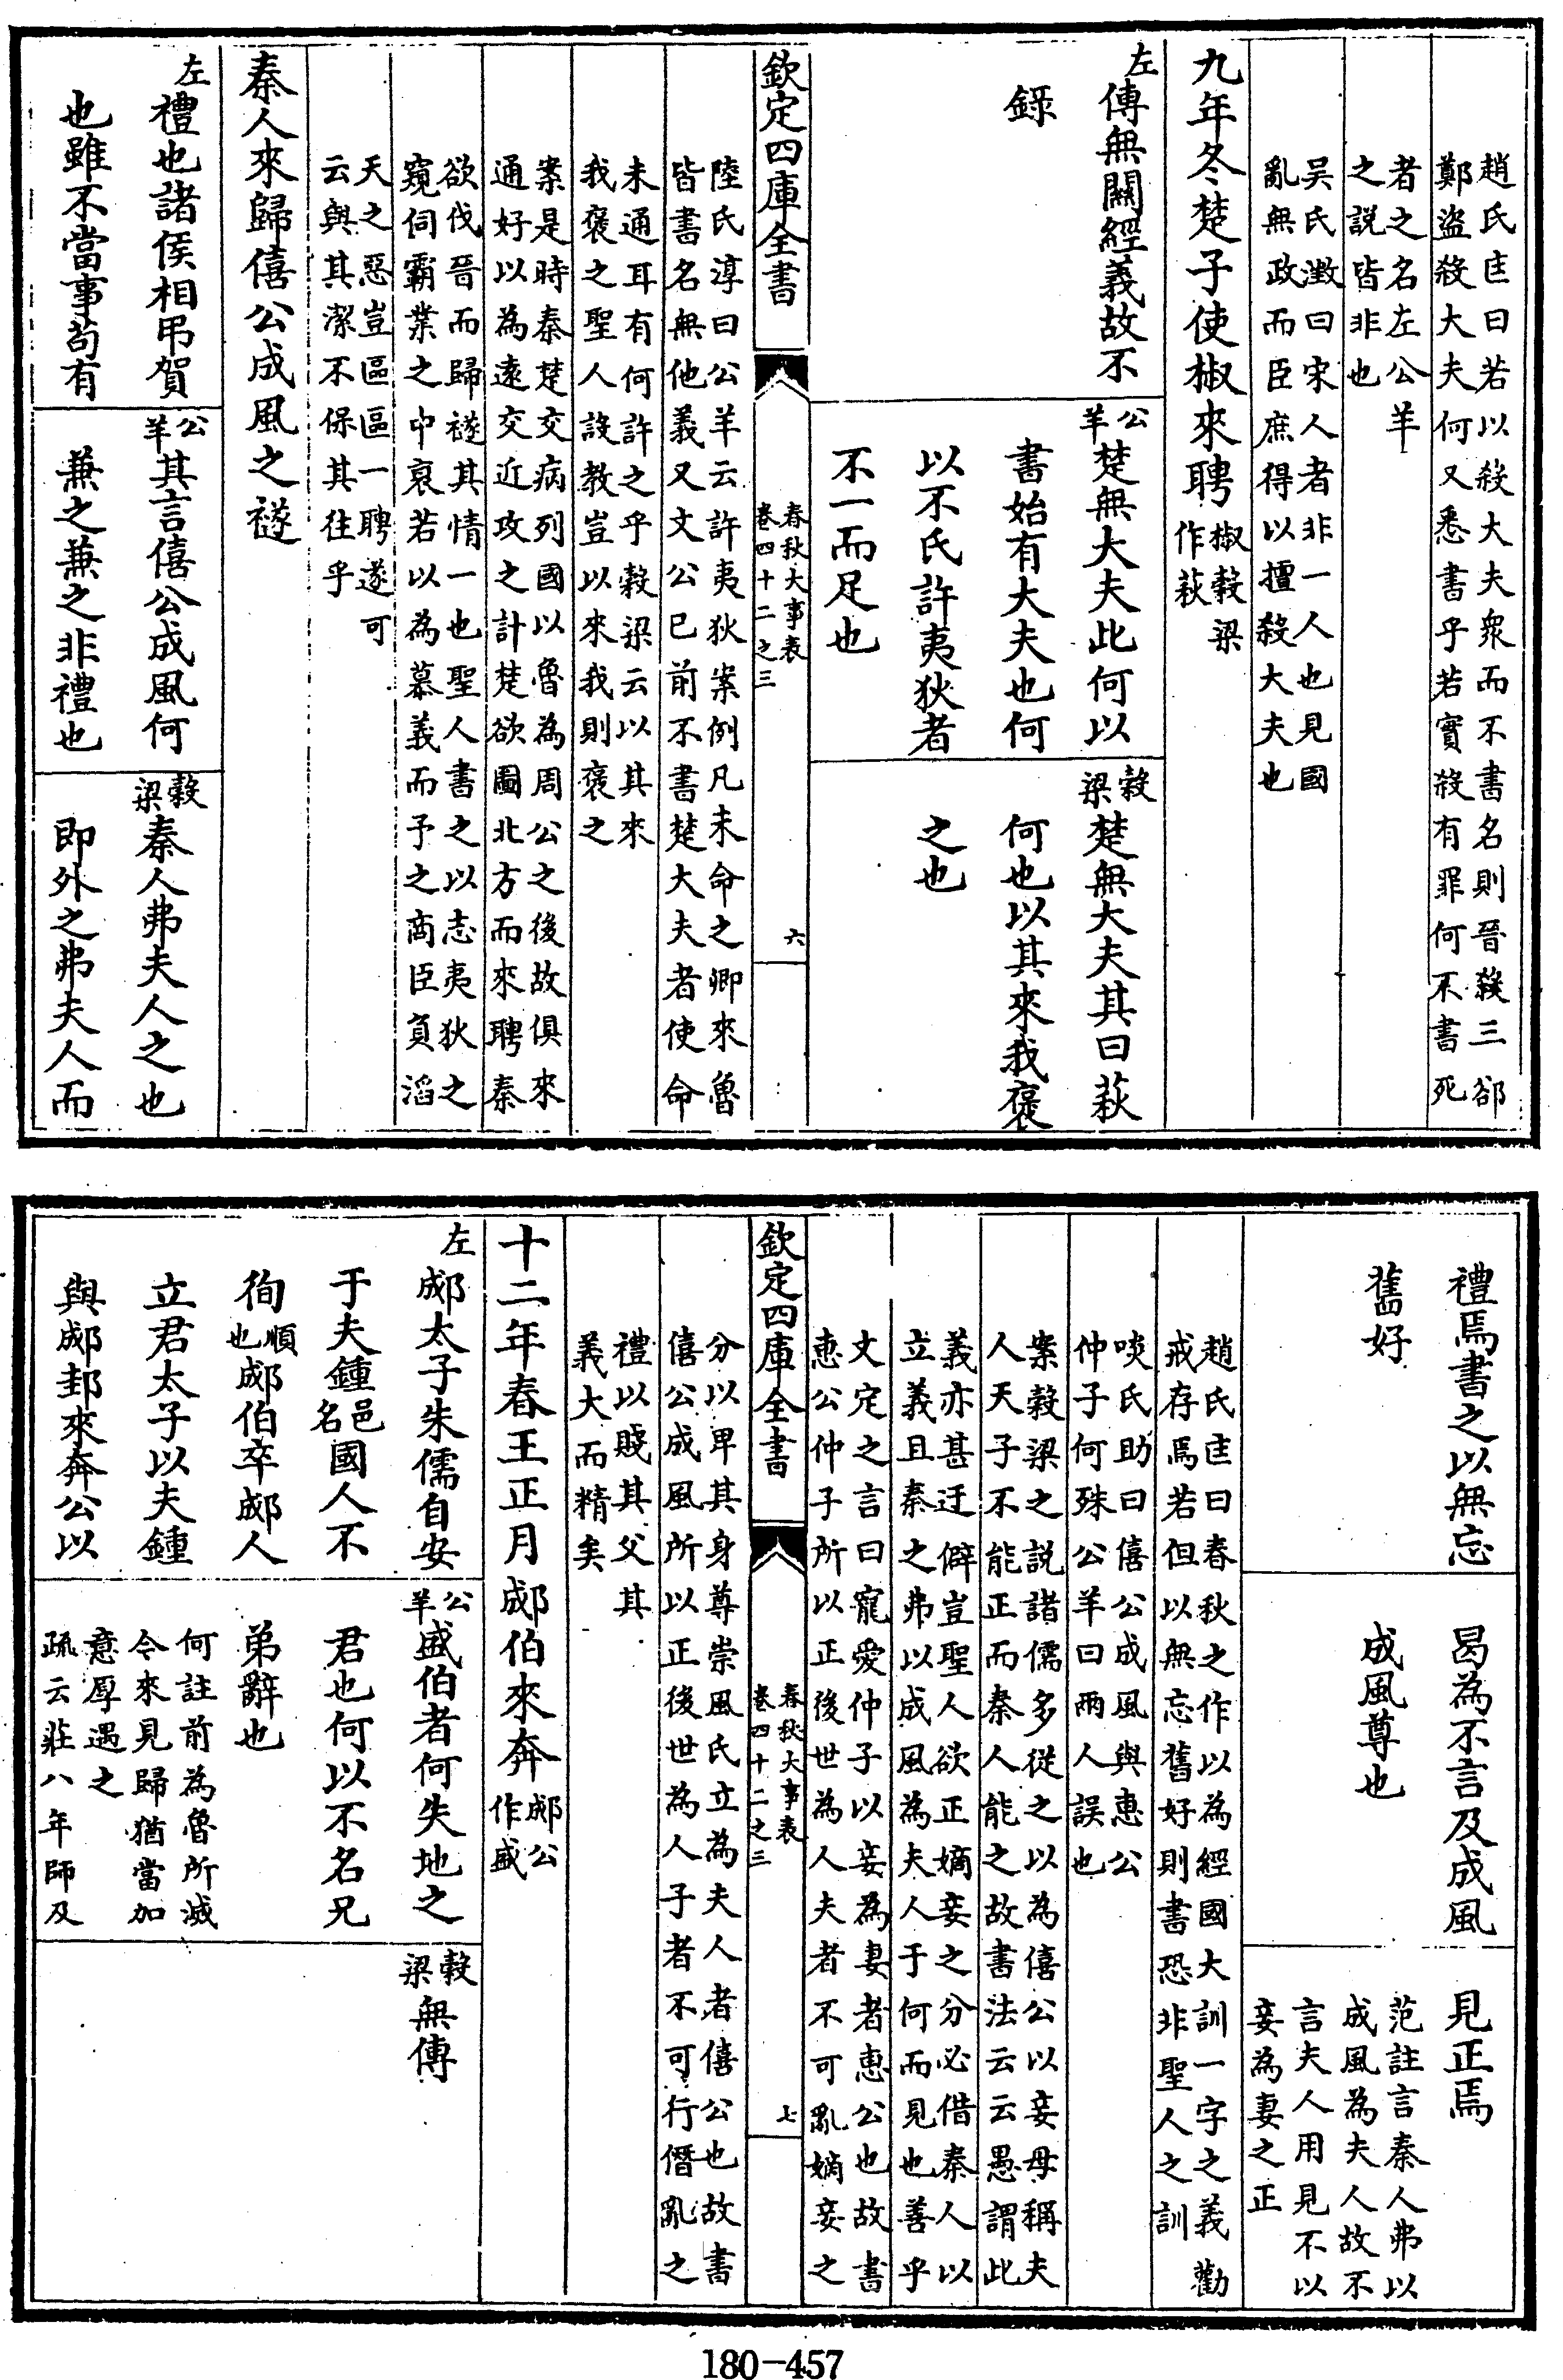 趙氏匡曰若以殺大夫衆而不書名則晉殺三郤
鄭盜殺大夫何又悉書乎若實殺有罪何不書死
者之名左公羊
之説皆非也
吴氏澂曰宋人者非一人也見國
亂無政而臣庶得以擅殺大夫也
九年冬楚子使椒來聘椒穀梁作萩
左傳無關經義故不
錄
公羊楚無大夫此何以
書始有大夫也何
以不氏許夷狄者
不一而足也
穀梁楚無大夫其曰萩
何也以其來我褒
之也
欽定四庫全書
春秋大事表
卷四十二之三
六
陸氏淳曰公羊云許夷狄案例凡未命之卿來魯
皆書名無他義又文公已前不書楚大夫者使命
未通耳有何許之乎穀梁云以其來
我褒之聖人設教豈以來我則褒之
案是時秦楚交病列國以魯為周公之後故俱來
通好以為遠交近攻之計楚欲圖北方而來聘秦
欲伐晉而歸襚其情一也聖人書之以志夷狄之
窺伺霸業之中衰若以為慕義而予之商臣負滔
天之惡豈區區一聘遂可
云與其潔不保其往乎
秦人來歸僖公成風之襚
左禮也諸侯相弔賀
也雖不當事苟有
公羊其言僖公成風何
兼之兼之非禮也
穀梁秦人弗夫人之也
即外之弗夫人而
禮焉書之以無忘
舊好
曷為不言及成風
成風尊也
見正焉
范註言秦人弗以
成風為夫人故不
言夫人用見不以
妾為妻之正
趙氏匡曰春秋之作以為經國大訓一字之義勸
戒存焉若但以無忘舊好則書恐非聖人之訓
啖氏助曰僖公成風與惠公
仲子何殊公羊曰兩人誤也
案穀梁之説諸儒多從之以為僖公以妾母稱夫
人天子不能正而秦人能之故書法云云愚謂此
義亦甚迂僻豈聖人欲正嫡妾之分必借秦人以
立義且秦之弗以成風為夫人于何而見也善乎
文定之言曰寵愛仲子以妾為妻者惠公也故書
惠公仲子所以正後世為人夫者不可亂嫡妾之
欽定四庫全書
春秋大事表
卷四十二之三
七
分以卑其身尊崇風氏立為夫人者僖公也故書
僖公成風所以正後世為人子者不可行僭亂之
禮以賤其父其
義大而精矣
十二年春王正月郕伯來奔郕公作盛
左郕太子朱儒自安
于夫鍾邑名國人不
徇順也郕伯卒郕人
立君太子以夫鍾
與郕邽來奔公以
公羊盛伯者何失地之
君也何以不名兄
弟辭也
何註前為魯所滅
今來見歸猶當加
意厚遇之
疏云莊八年師及
穀梁無傳
180-457